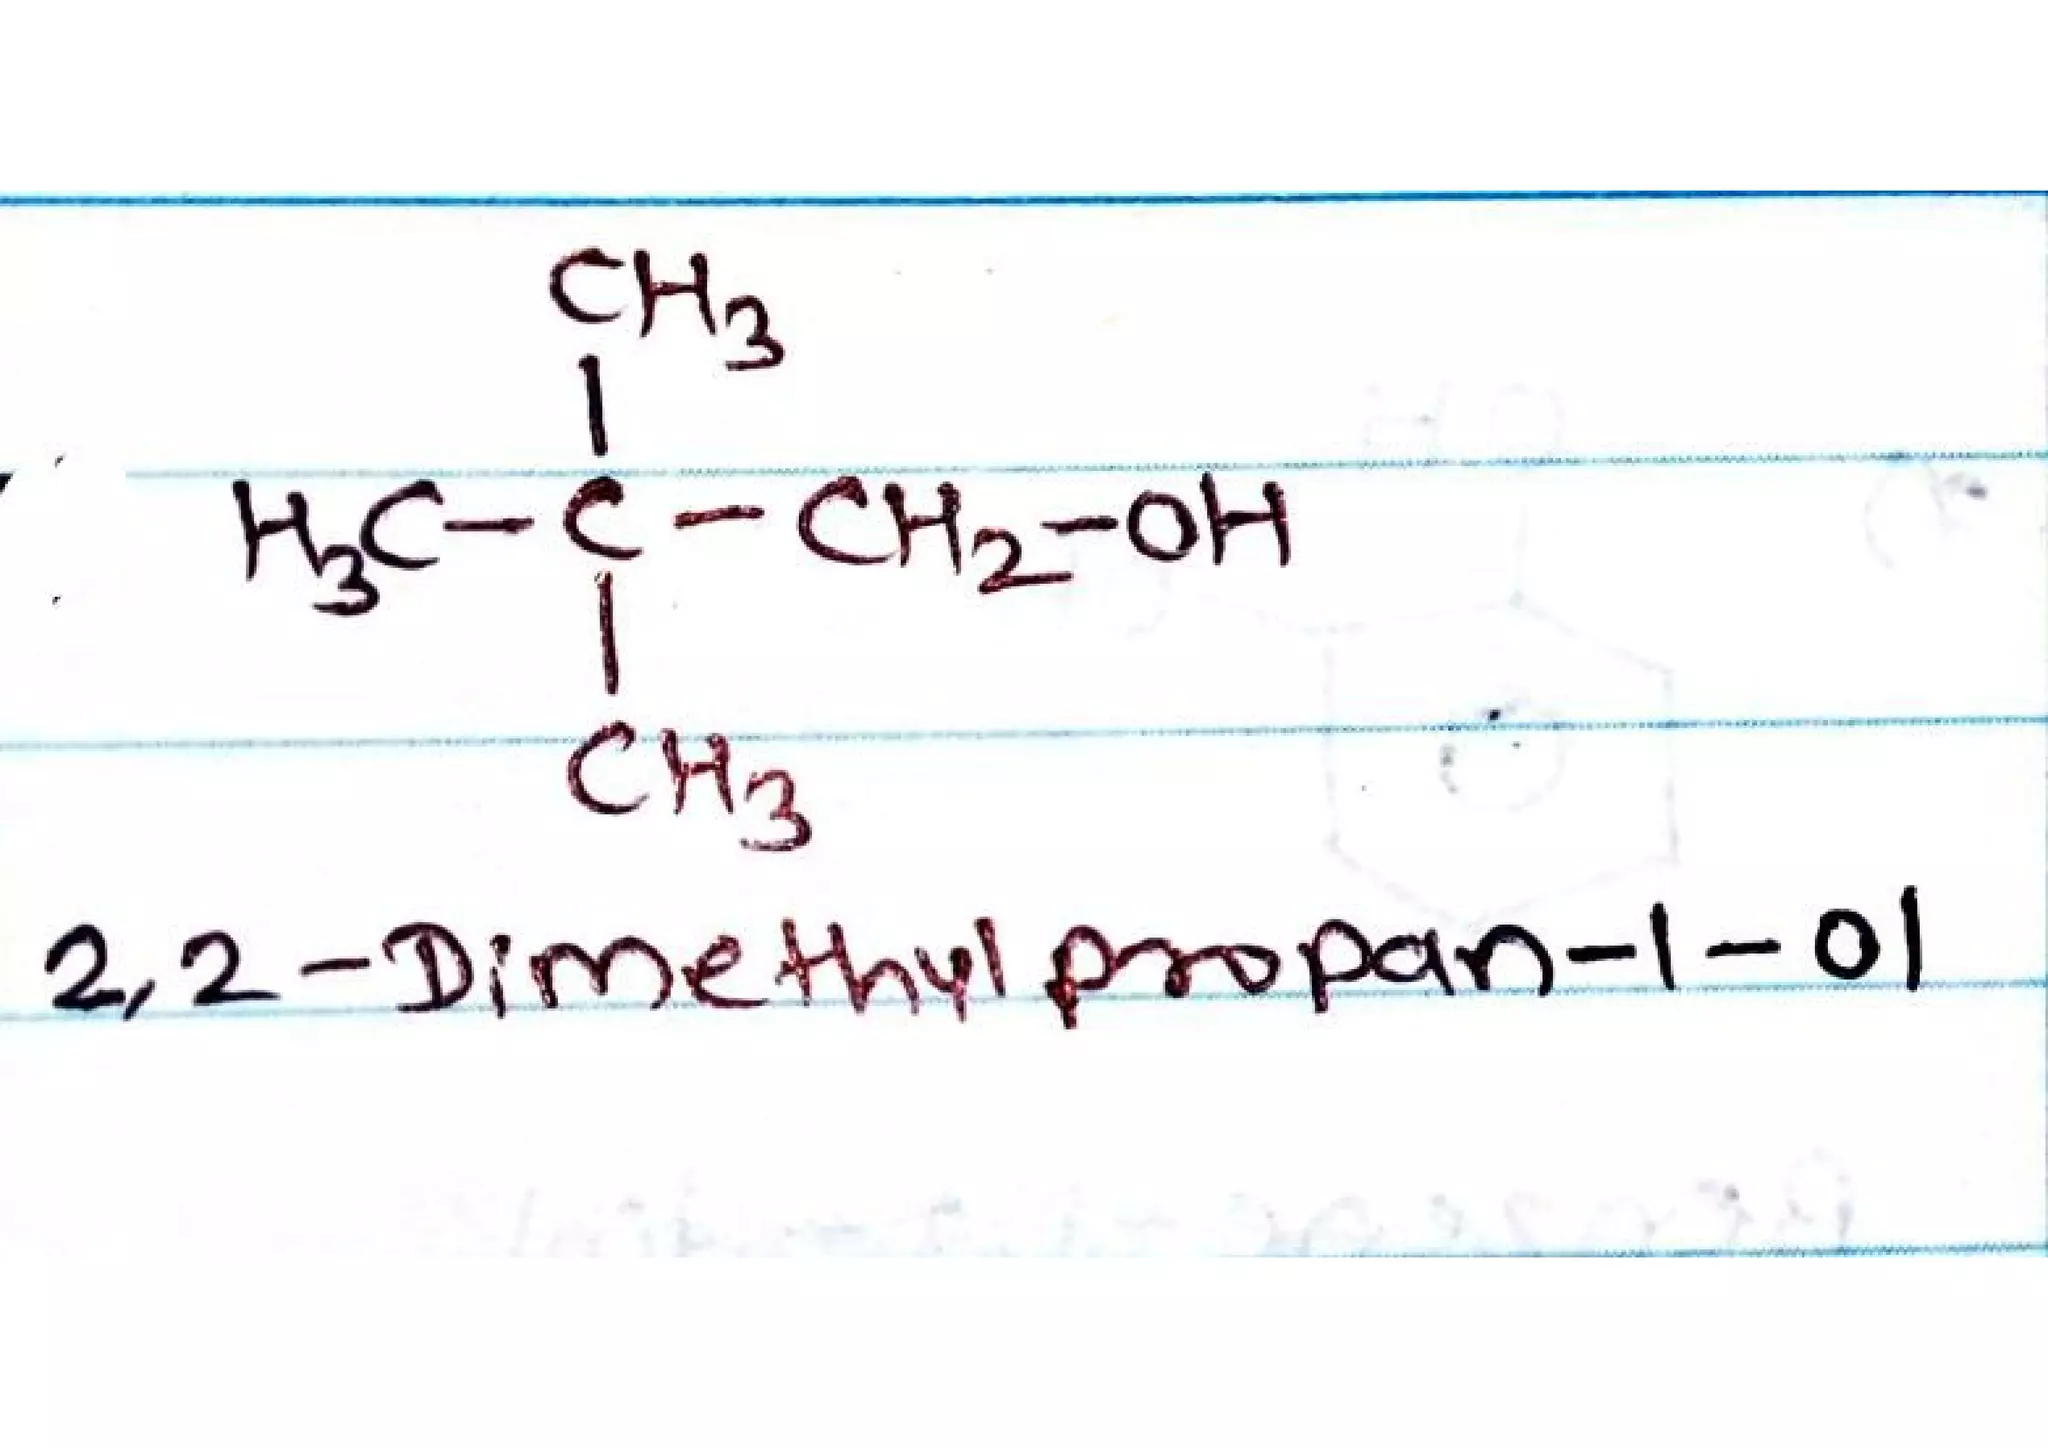 CH3
H3C-C-CH2-OH
CH3
2,2-Dimethylpropan-1-ol